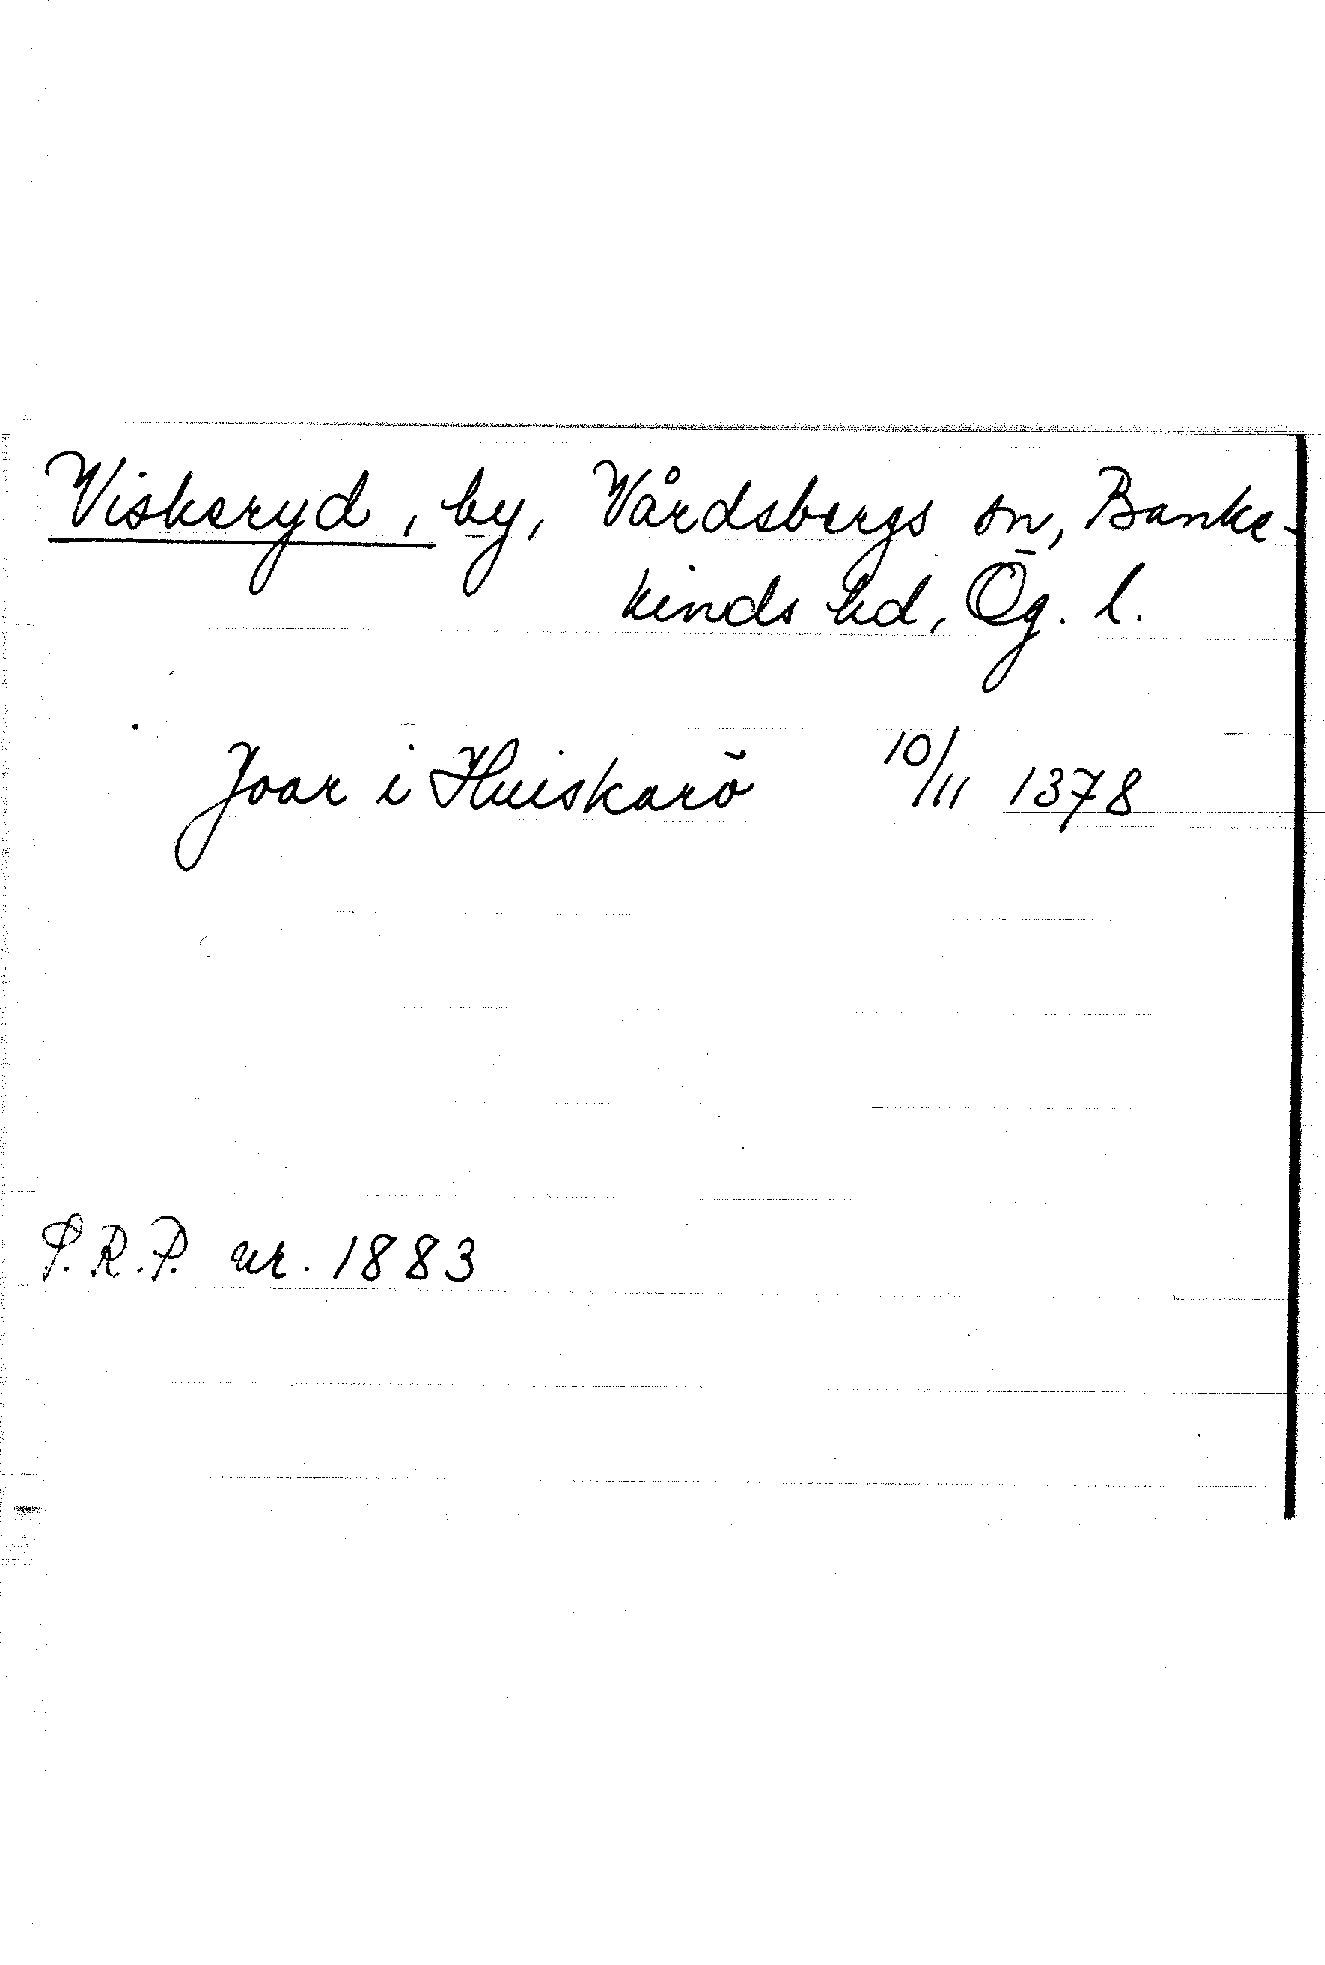 Viskeryd, by, Vårdsbergs sn, Banke-
kinds hd, Ög. l.
Joar i Huiskarö 10/11 1378
S.R.P. nr. 1883